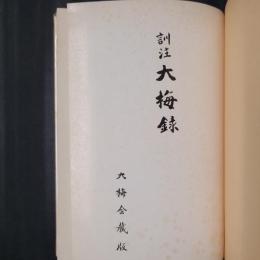 訓注
大梅録
大梅会蔵版